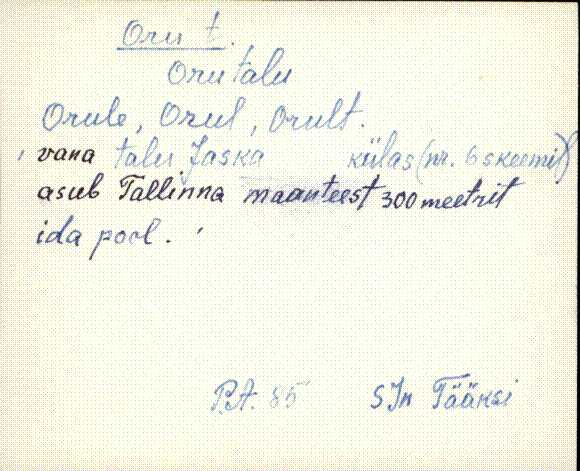 Oru t.
Oru talu
Orule, Orul, Orult.
vana talu Jaska külas (nr. 6 skeemil)
asub Tallinna maanteest 300 meetrit
ida pool.
P.A. 85 SJn Tääksi